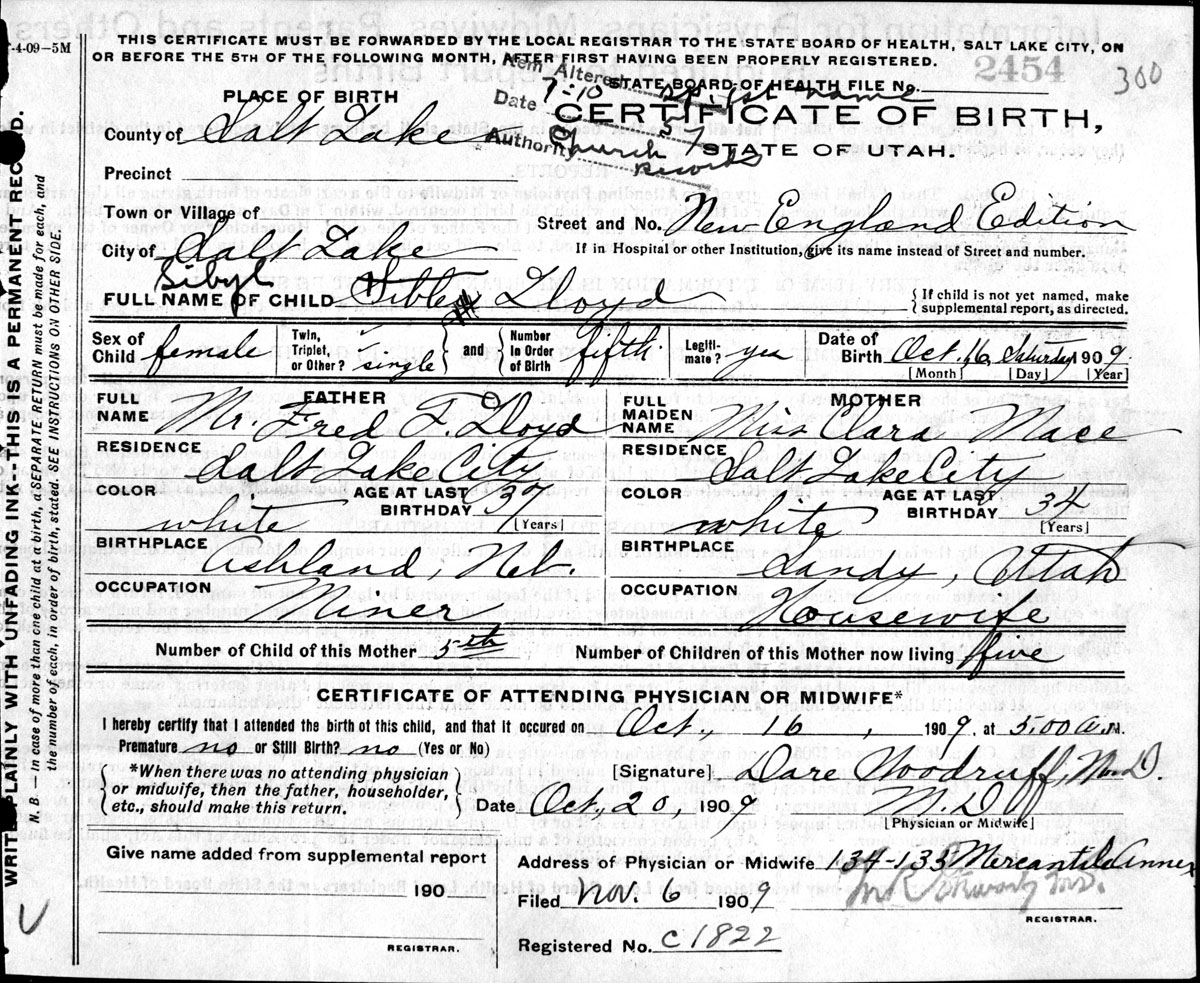 -4-09-5M
THIS CERTIFICATE MUST BE FORWARDED BY THE LOCAL REGISTRAR TO THE STATE BOARD OF HEALTH, SALT LAKE CITY, ON
OR BEFORE THE 5TH OF THE FOLLOWING MONTH, AFTER FIRST HAVING BEEN PROPERLY REGISTERED.
2454
300
STATE BOARD OF HEALTH FILE No.
Item Altered
Date 7-10
Authority Church Records
PLACE OF BIRTH
CERTIFICATE OF BIRTH,
STATE OF UTAH.
County of Salt Lake
Precinct
Town or Village of
Street and No. New England Edition
City of Salt Lake
If in Hospital or other Institution, give its name instead of Street and number.
Sibyl
FULL NAME OF CHILD Lloyd
{ If child is not yet named, make
supplemental report, as directed.
Sex of Child female
Twin, Triplet, or Other? single
and
Number In Order of Birth fifth
Legiti-mate? yes
Date of Birth Oct. 16, Saturday 1909.
[Month] [Day] [Year]
FATHER
FULL NAME Mr. Fred F. Lloyd
RESIDENCE Salt Lake City
COLOR white
AGE AT LAST BIRTHDAY 37
[Years]
BIRTHPLACE Ashland, Neb.
OCCUPATION Miner
MOTHER
FULL MAIDEN NAME Miss Clara Mace
RESIDENCE Salt Lake City
COLOR white
AGE AT LAST BIRTHDAY 34
[Years]
BIRTHPLACE Sandy, Utah
OCCUPATION Housewife
Number of Child of this Mother 5th
Number of Children of this Mother now living five
CERTIFICATE OF ATTENDING PHYSICIAN OR MIDWIFE*
I hereby certify that I attended the birth of this child, and that it occured on Oct., 16, 1909, at 5.00 a.M.
Premature no or Still Birth? no (Yes or No)
*When there was no attending physician
or midwife, then the father, householder,
etc., should make this return.
[Signature] Dare Woodruff, M.D.
Date Oct, 20, 1909
M.D
[Physician or Midwife]
Give name added from supplemental report
190
REGISTRAR.
Address of Physician or Midwife 134-133 Mercantile Annex
Filed Nov. 6 1909
REGISTRAR.
Registered No. C1822
WRITE PLAINLY WITH UNFADING INK-THIS IS A PERMANENT RECORD.
N. B. — In case of more than one child at a birth, a SEPARATE RETURN must be made for each, and
the number of each, in order of birth, stated. SEE INSTRUCTIONS ON OTHER SIDE.